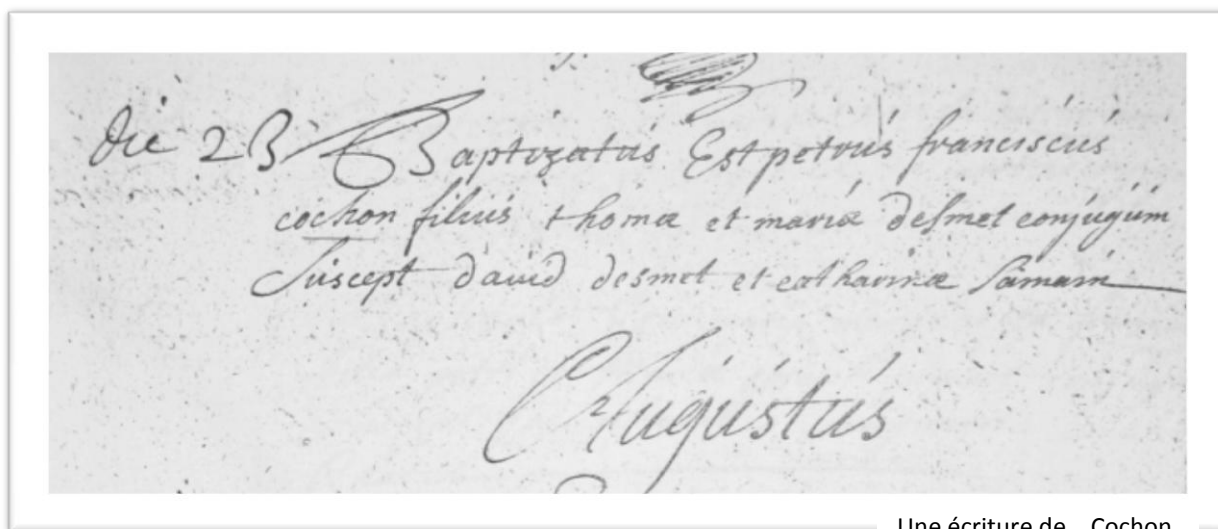 die 23 Baptizatus Est petrus franciscus
cochon filius thomæ et mariæ desmet conjugum
Suscept david desmet et catharinæ samain
Augustus
Une écriture de Cochon